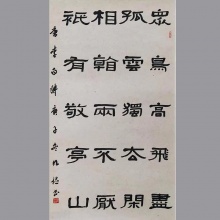 眾鳥高飛盡
孤雲獨去閑
相看兩不厭
祇有敬亭山
唐李白詩庚子冬